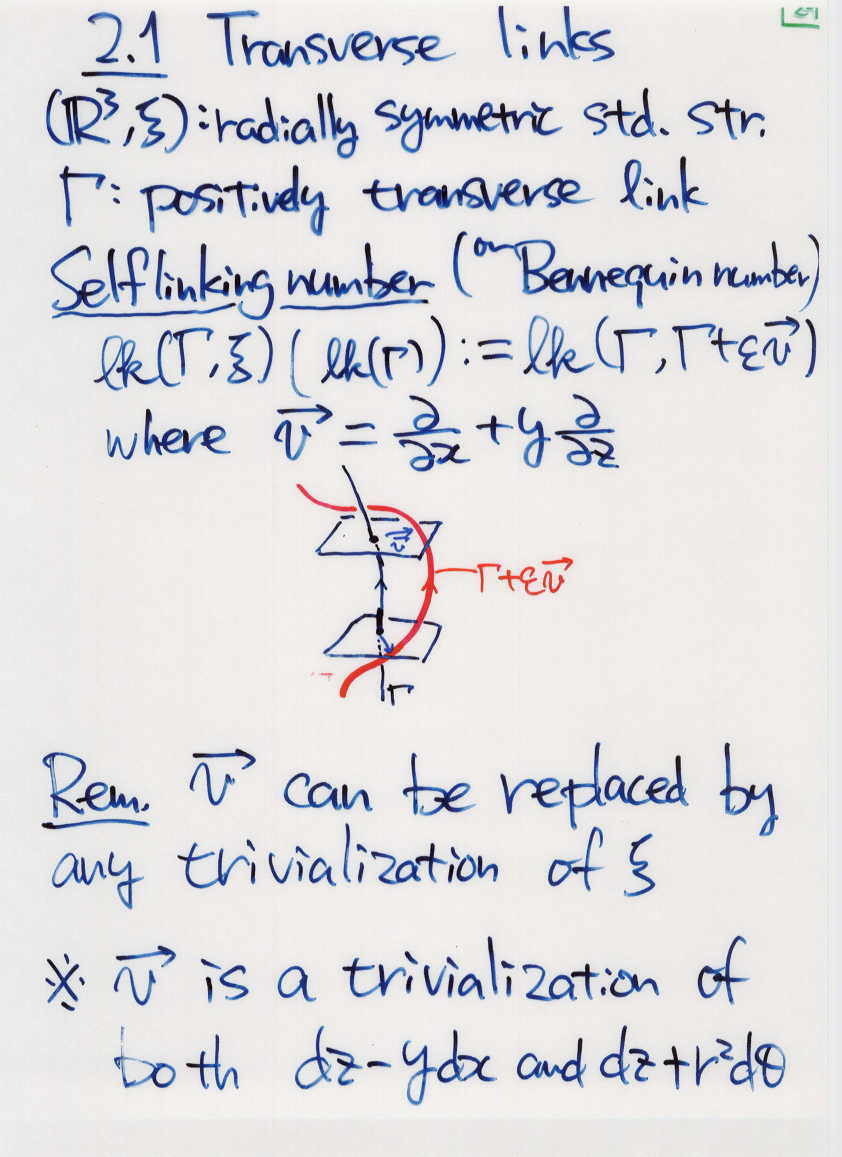 2.1 Transverse links
(ℝ³, ξ) : radially symmetric std. str.
Γ : positively transverse link
Self linking number (or Bennequin number)
lk(Γ, ξ) ( lk(Γ) ) := lk(Γ, Γ+εv⃗)
where v⃗ = ∂/∂x + y ∂/∂z
v⃗
Γ+εv⃗
Γ
Rem. v⃗ can be replaced by
any trivialization of ξ
※ v⃗ is a trivialization of
both dz-ydx and dz+r²dθ